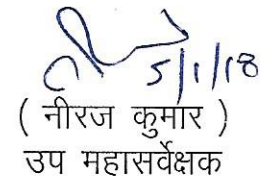 5/1/18
( नीरज कुमार )
उप महासर्वेक्षक